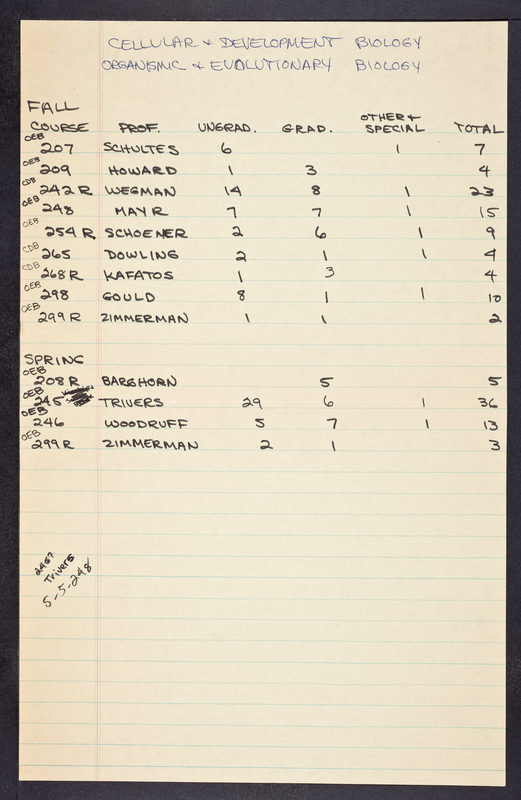 CELLULAR + DEVELOPMENT BIOLOGY
ORGANISMIC + EVOLUTIONARY BIOLOGY
FALL
COURSE PROF. UNGRAD. GRAD. OTHER + SPECIAL TOTAL
OEB 207 SCHULTES 6 1 7
OEB 209 HOWARD 1 3 4
CDB 242 R WEGMAN 14 8 1 23
OEB 248 MAYR 7 7 1 15
OEB 254 R SCHOENER 2 6 1 9
CDB 265 DOWLING 2 1 1 4
CDB 268 R KAFATOS 1 3 4
OEB 298 GOULD 8 1 1 10
OEB 299 R ZIMMERMAN 1 1 2
SPRING
OEB 208 R BARGHORN 5 5
OEB 245 TRIVERS 29 6 1 36
OEB 246 WOODRUFF 5 7 1 13
OEB 299 R ZIMMERMAN 2 1 3
245?
Trivers
5-5-248